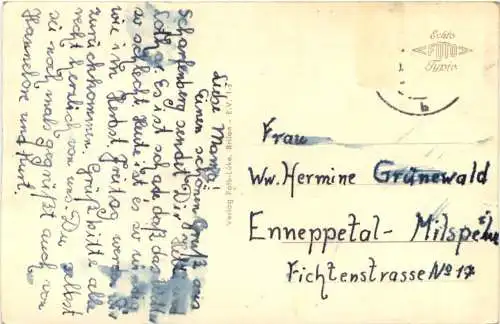 Liebe Mama!
Einen schönen Gruß aus
Scharfenberg sendet Dir Helene
Lothar. Es ist schade, daß das
so schlecht. Heut ist es so windig
wie im Herbst. Freitag werden
zurückkommen. Grüß bitte alle
recht herzlich von uns. Du selbst
sei noch mals gegrüßt auch von
Hannelore und Kurt.
Verlag Foto-Löke, Brilon
Echte
FOTO
Typie
b
Frau
Ww. Hermine Grünewald
Enneppetal-Milspe
Fichtenstrasse No 17